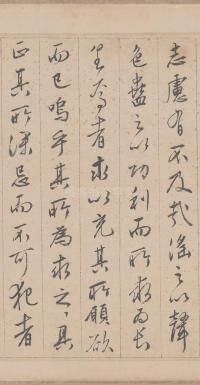 志慮有不及哉淫之以聲
色蠱之以功利而所而長
生者求以充其所願欲
而已嗚乎其所為求之其
正其所深忌而不可犯者